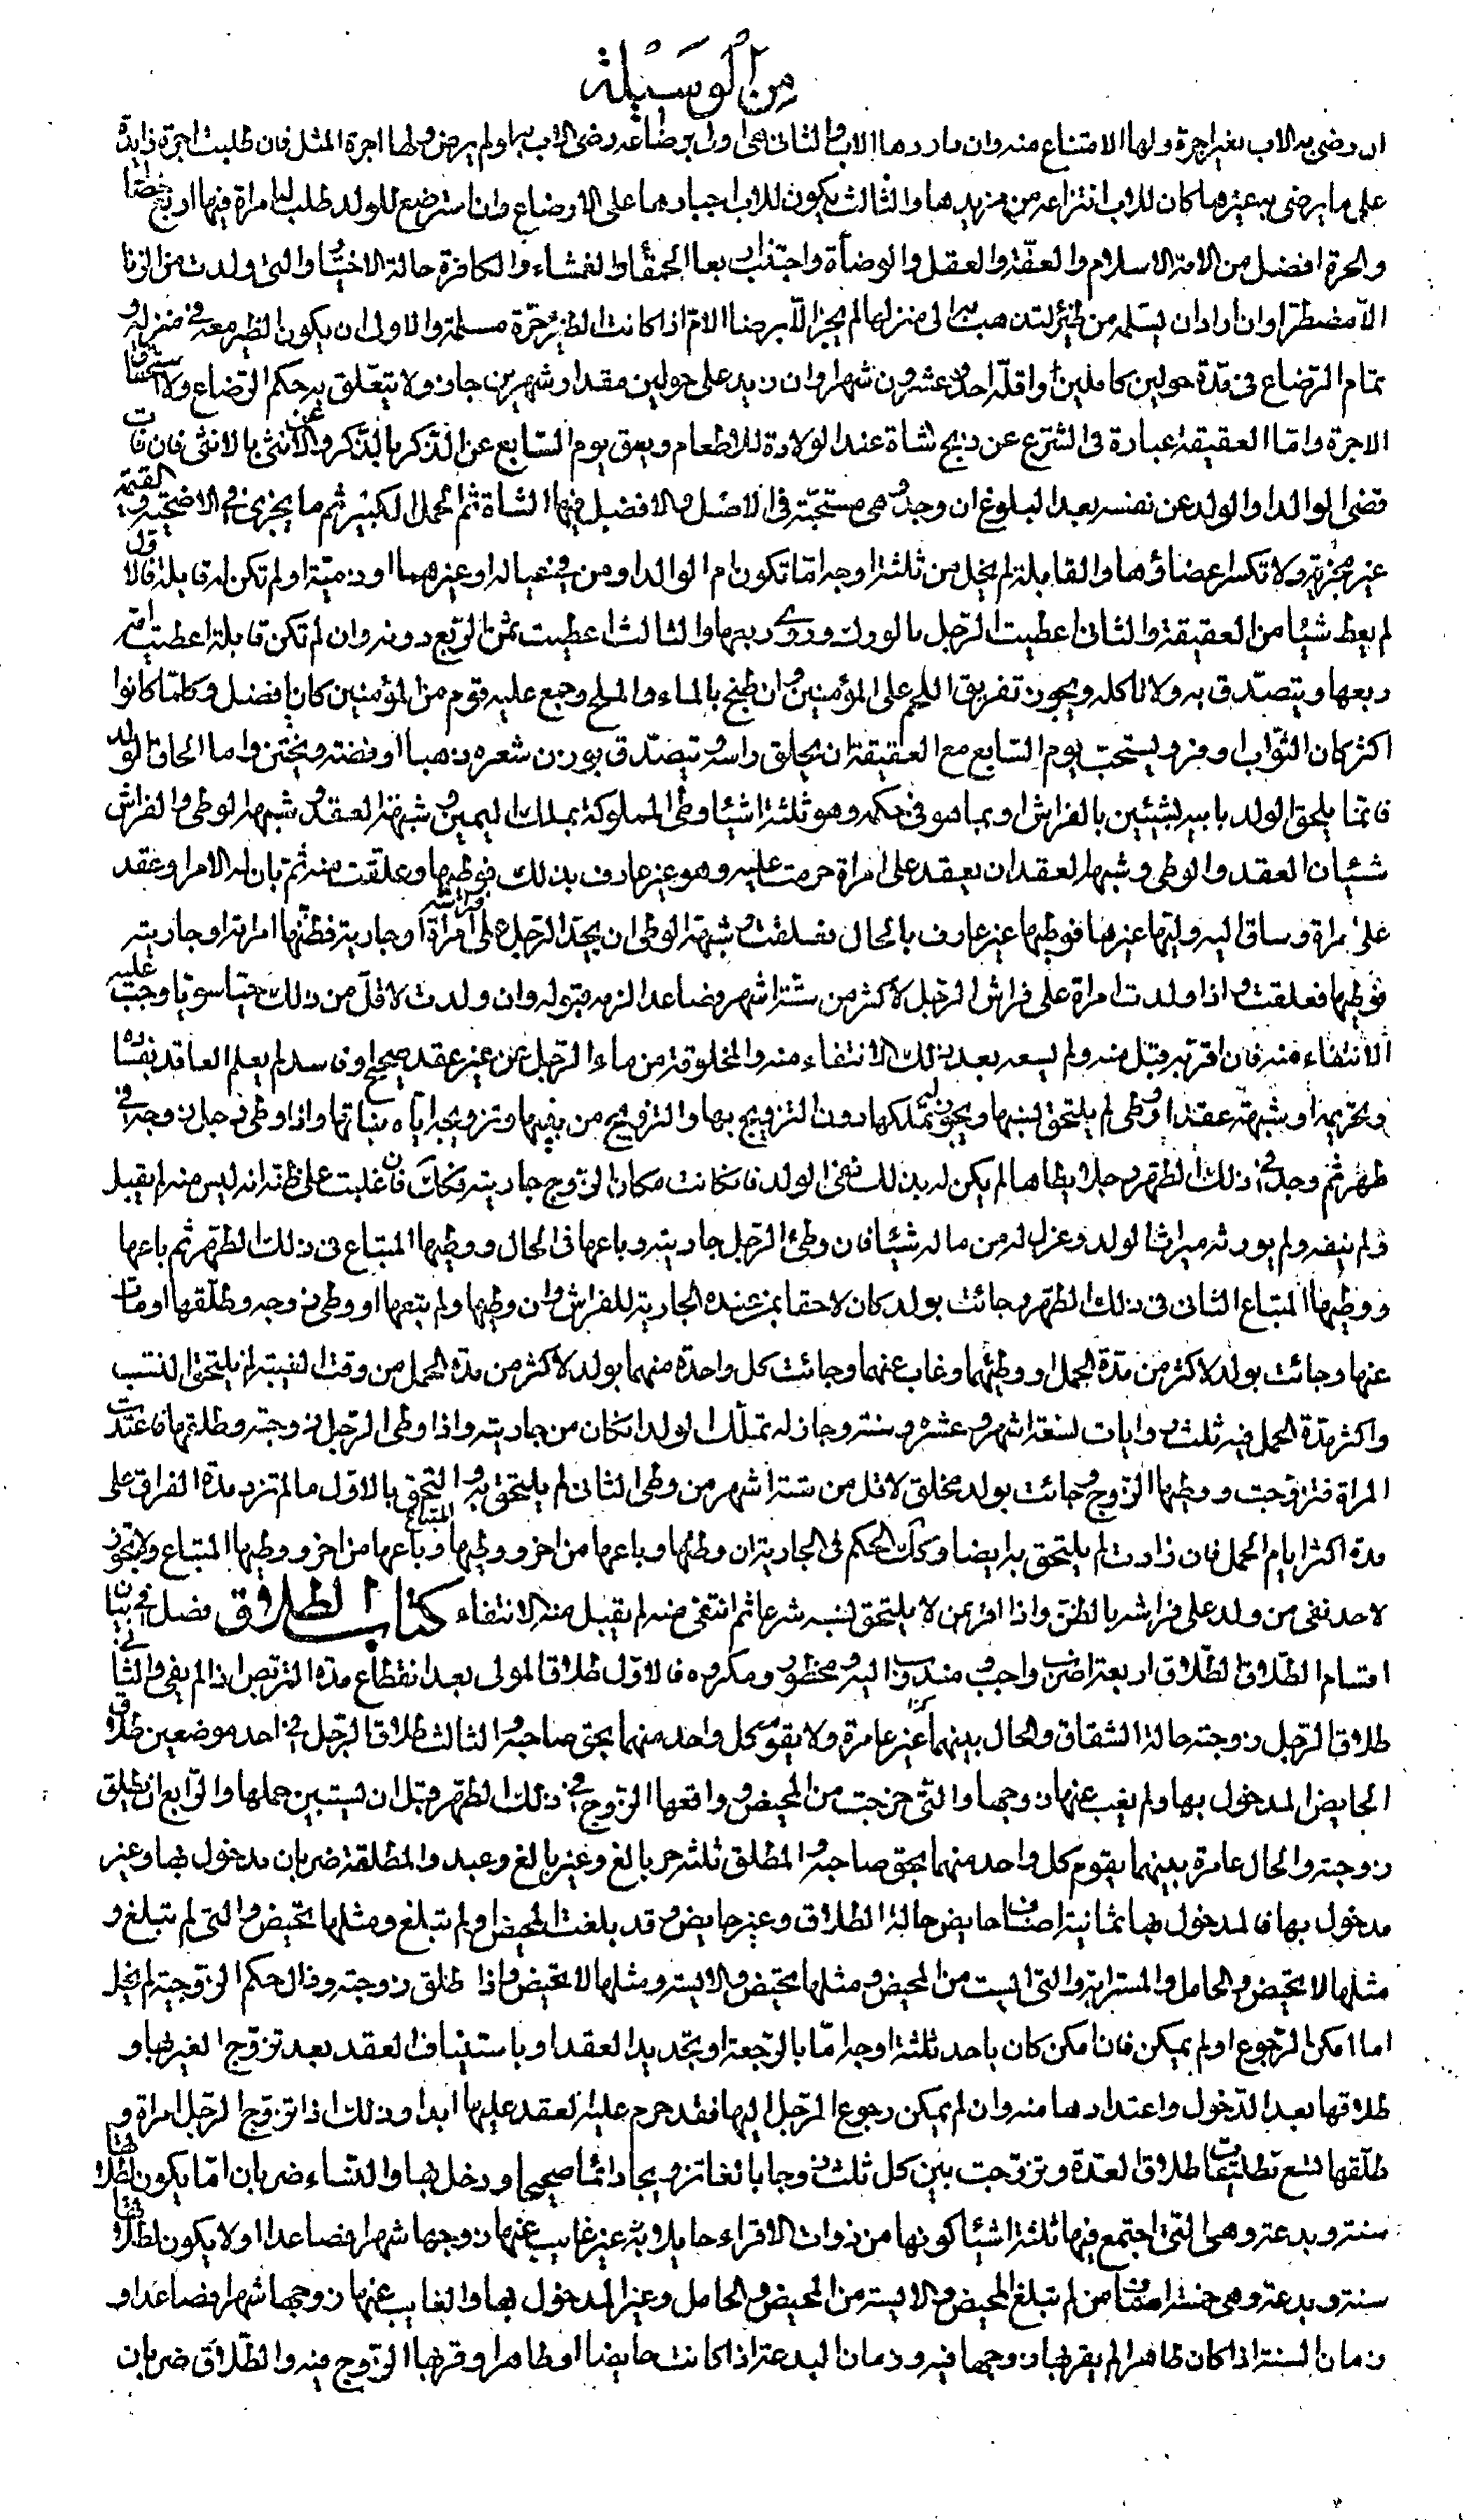 من الوسيلة
ان رضى به الاب بغير اجرة ولها الامتناع منه وان بادرها الاب والثانى هى اولى برضاعه ورضى الاب بها ولم يرض ولها اجرة المثل فان طلبت اجرة زايدة
على ما يرضى به غيرها كان للاب انتزاعه من يدها والثالث يكون للاب اجبارها على الارضاع وان استرضع للولد طلب له امراة فيها اربع خصال
والحرة افضل من الامة الاسلام والعفة والعقل والوضأة واجتناب الحمقاء والعمشاء والكافرة حالة الاختيار والتى ولدت من الزنا
الا مضطرا وان اراد ان يسلمه من ظئر لتذهب به الى منزلها لم يجز الا برضا الام اذا كانت الظئر حرة مسلمة والاولى ان يكون الظئر معه فى منزله و
تمام الرضاع فى مدة حولين كاملين واقله احد وعشرون شهرا وان زيد على حولين مقدار شهرين جاز ولا يتعلق به حكم الرضاع ولا استحقاق
الاجرة واما العقيقة عبارة فى الشرع عن ذبح شاة عند الولادة للاطعام ويعق يوم السابع عن الذكر بالذكر وعن الانثى بالانثى فان فات
قضى الوالد او الولد عن نفسه بعد البلوغ ان وجد وهى مستحبة فى الاصل والافضل فيها الشاة ثم الحمل الكبير ثم ما يجزى فى الاضحية والقيمة
غير مجزية ولا تكسر اعضاؤها والقابلة لم يخل من ثلثة اوجه اما تكون ام الوالد او من فى عياله او غيرهما او ذمية او لم تكن له قابلة فالاول
لم يعط شيئا من العقيقة والثانى اعطيت الرجل بالورك وروى ربعها والثالث اعطيت ثمن الربع دونه وان لم تكن قابلة اعطيت امه
ربعها ويتصدق به ولا تاكله ويجوز تفريق اللحم على المؤمنين وان طبخ بالماء والملح وجمع عليه قوم من المؤمنين كان افضل وكلما كانوا
اكثر كان الثواب اوفر ويستحب يوم السابع مع العقيقة ان يحلق راسه ويتصدق بوزن شعره ذهبا او فضة ويختن واما الحاق الولد
فانما يلحق الولد بابيه بشيئين بالفراش او بما هو فى حكمه وهو ثلثة اشياء وطى المملوكة بملك اليمين وشبهة العقد وشبهة الوطى والفراش
شيئان العقد والوطى وشبهة العقد ان يعقد على امراة حرمت عليه وهو غير عارف بذلك فوطيها وعلقت منه ثم بان له الامر او عقد
على امراة وساق اليه وليها غيرها فوطيها غير عارف بالحال فعلقت وشبهة الوطى ان يجد الرجل على فراشه امراة او جارية فظنها امراته او جاريته
فوطيها فعلقت واذا ولدت امراة على فراش الرجل لاكثر من ستة اشهر فصاعدا لزمه قبوله وان ولدت لاقل من ذلك حيا سويا وجب عليه
الانتفاء منه فان اقر به قبل منه ولم يسعه بعد ذلك الانتفاء منه والمخلوقة من ماء الرجل من غير عقد صحيح او فاسد لم يعلم العاقد بفساده
وتحريمه او شبهة عقد او وطى لم يلتحق نسبها ويجوز له تملكها دون التزويج بها والتزويج من بنيها وتزويج اباه بناتها واذا وطى رجل زوجته فى
طهر ثم وجد فى ذلك الطهر رجلا يطاها لم يكن له بذلك نفى الولد فان كانت مكان الزوج جاريته وكانت فان غلبت على ظنه انه ليس منه لم يقبل
ولم ينفه ولم يورثه ميراث الولد وعزل له من ماله شيئا فان وطى الرجل جاريته وباعها فى الحال ووطيها المبتاع فى ذلك الطهر ثم باعها
ووطيها المبتاع الثانى فى ذلك الطهر وجائت بولد كان لاحقا بمن عنده الجارية للفراش وان وطيها ولم يبعها او وطى زوجه وطلقها او مات
عنها وجائت بولد لاكثر من مدة الحمل او وطئهما وغاب عنهما وجائت كل واحدة منهما بولد لاكثر من مدة الحمل من وقت الغيبة لم يلتحق النسب
واكثر مدة الحمل فيه ثلث روايات تسعة اشهر وعشرة وسنة وجاز له تملك الولد ان كان من جاريته واذا وطى الرجل زوجته وطلقها فاعتدت
المراة فتزوجت ووطيها الزوج وجائت بولد مخلق لاقل من ستة اشهر من وطى الثانى لم يلتحق به والتحق بالاول ما لم تزد مدة الفراق على
مدة اكثر ايام الحمل فان زادت لم يلتحق به ايضا وكذلك الحكم فى الجارية ان وطئها وباعها من اخر ووطيها المبتاع وباعها من اخر ووطيها المبتاع ولا يجوز
لاحد نفى من ولد على فراشه بالظن واذا اقر بمن لا يلتحق نسبه شرعا ثم انتفى منه لم يقبل منه الانتفاء كتاب الطلاق فصل فى بيان
اقسام الطلاق الطلاق اربعة اضرب واجب ومندوب اليه ومحظور ومكروه فالاول طلاق المولى بعد انقطاع مدة التربص اذا لم يفئ والثانى
طلاق الرجل زوجته حالة الشقاق والحال بينهما غير عامرة ولا يقوم كل واحد منهما بحق صاحبه والثالث طلاق الرجل فى احد موضعين طلاق
الحايض المدخول بها ولم يغب عنها زوجها والتى خرجت من المحيض وواقعها الزوج فى ذلك الطهر قبل ان يستبين حملها والرابع ان يطلق
زوجته والحال عامرة بينهما يقوم كل واحد منهما بحق صاحبه والمطلق ثلثة حر بالغ وغير بالغ وعبد والمطلقة ضربان مدخول بها وغير
مدخول بها فالمدخول بها ثمانية اصناف حايض حالة الطلاق وغير حايض وقد بلغت المحيض ولم تبلغ ومثلها تحيض والتى لم تبلغ و
مثلها لا تحيض والحامل والمسترابة والتى ايست من المحيض ومثلها تحيض والايسة ومثلها لا تحيض واذا طلق زوجته وزال حكم الزوجية لم يخل
اما امكن الرجوع او لم يمكن فان امكن كان باحد ثلثة اوجه اما بالرجعة او بتجديد العقد او باستيناف العقد بعد تزوج الغير بها و
طلاقها بعد الدخول واعتدادها منه وان لم يمكن رجوع الرجل اليها فقد حرم عليه العقد عليها ابدا وذلك اذا تزوج الرجل امراة و
طلقها تسع تطليقات طلاق العدة وتزوجت بين كل ثلث زوجا بالغا تزويجا دائما صحيحا ودخل بها والنساء ضربان اما يكون لطلاقها
سنة وبدعة وهى التى اجتمع فيها ثلثة اشياء كونها من ذوات الاقراء حايلا وغير غايب عنها زوجها شهرا فصاعدا او لا يكون لطلاقها
سنة وبدعة وهى خمسة اصناف من لم تبلغ المحيض والايسة من المحيض والحامل وغير المدخول بها والغايب عنها زوجها شهرا فصاعدا و
زمان السنة اذا كان طاهرا لم يقربها زوجها فيه وزمان البدعة اذا كانت حايضا او طاهرا وقربها الزوج فيه والطلاق ضربان